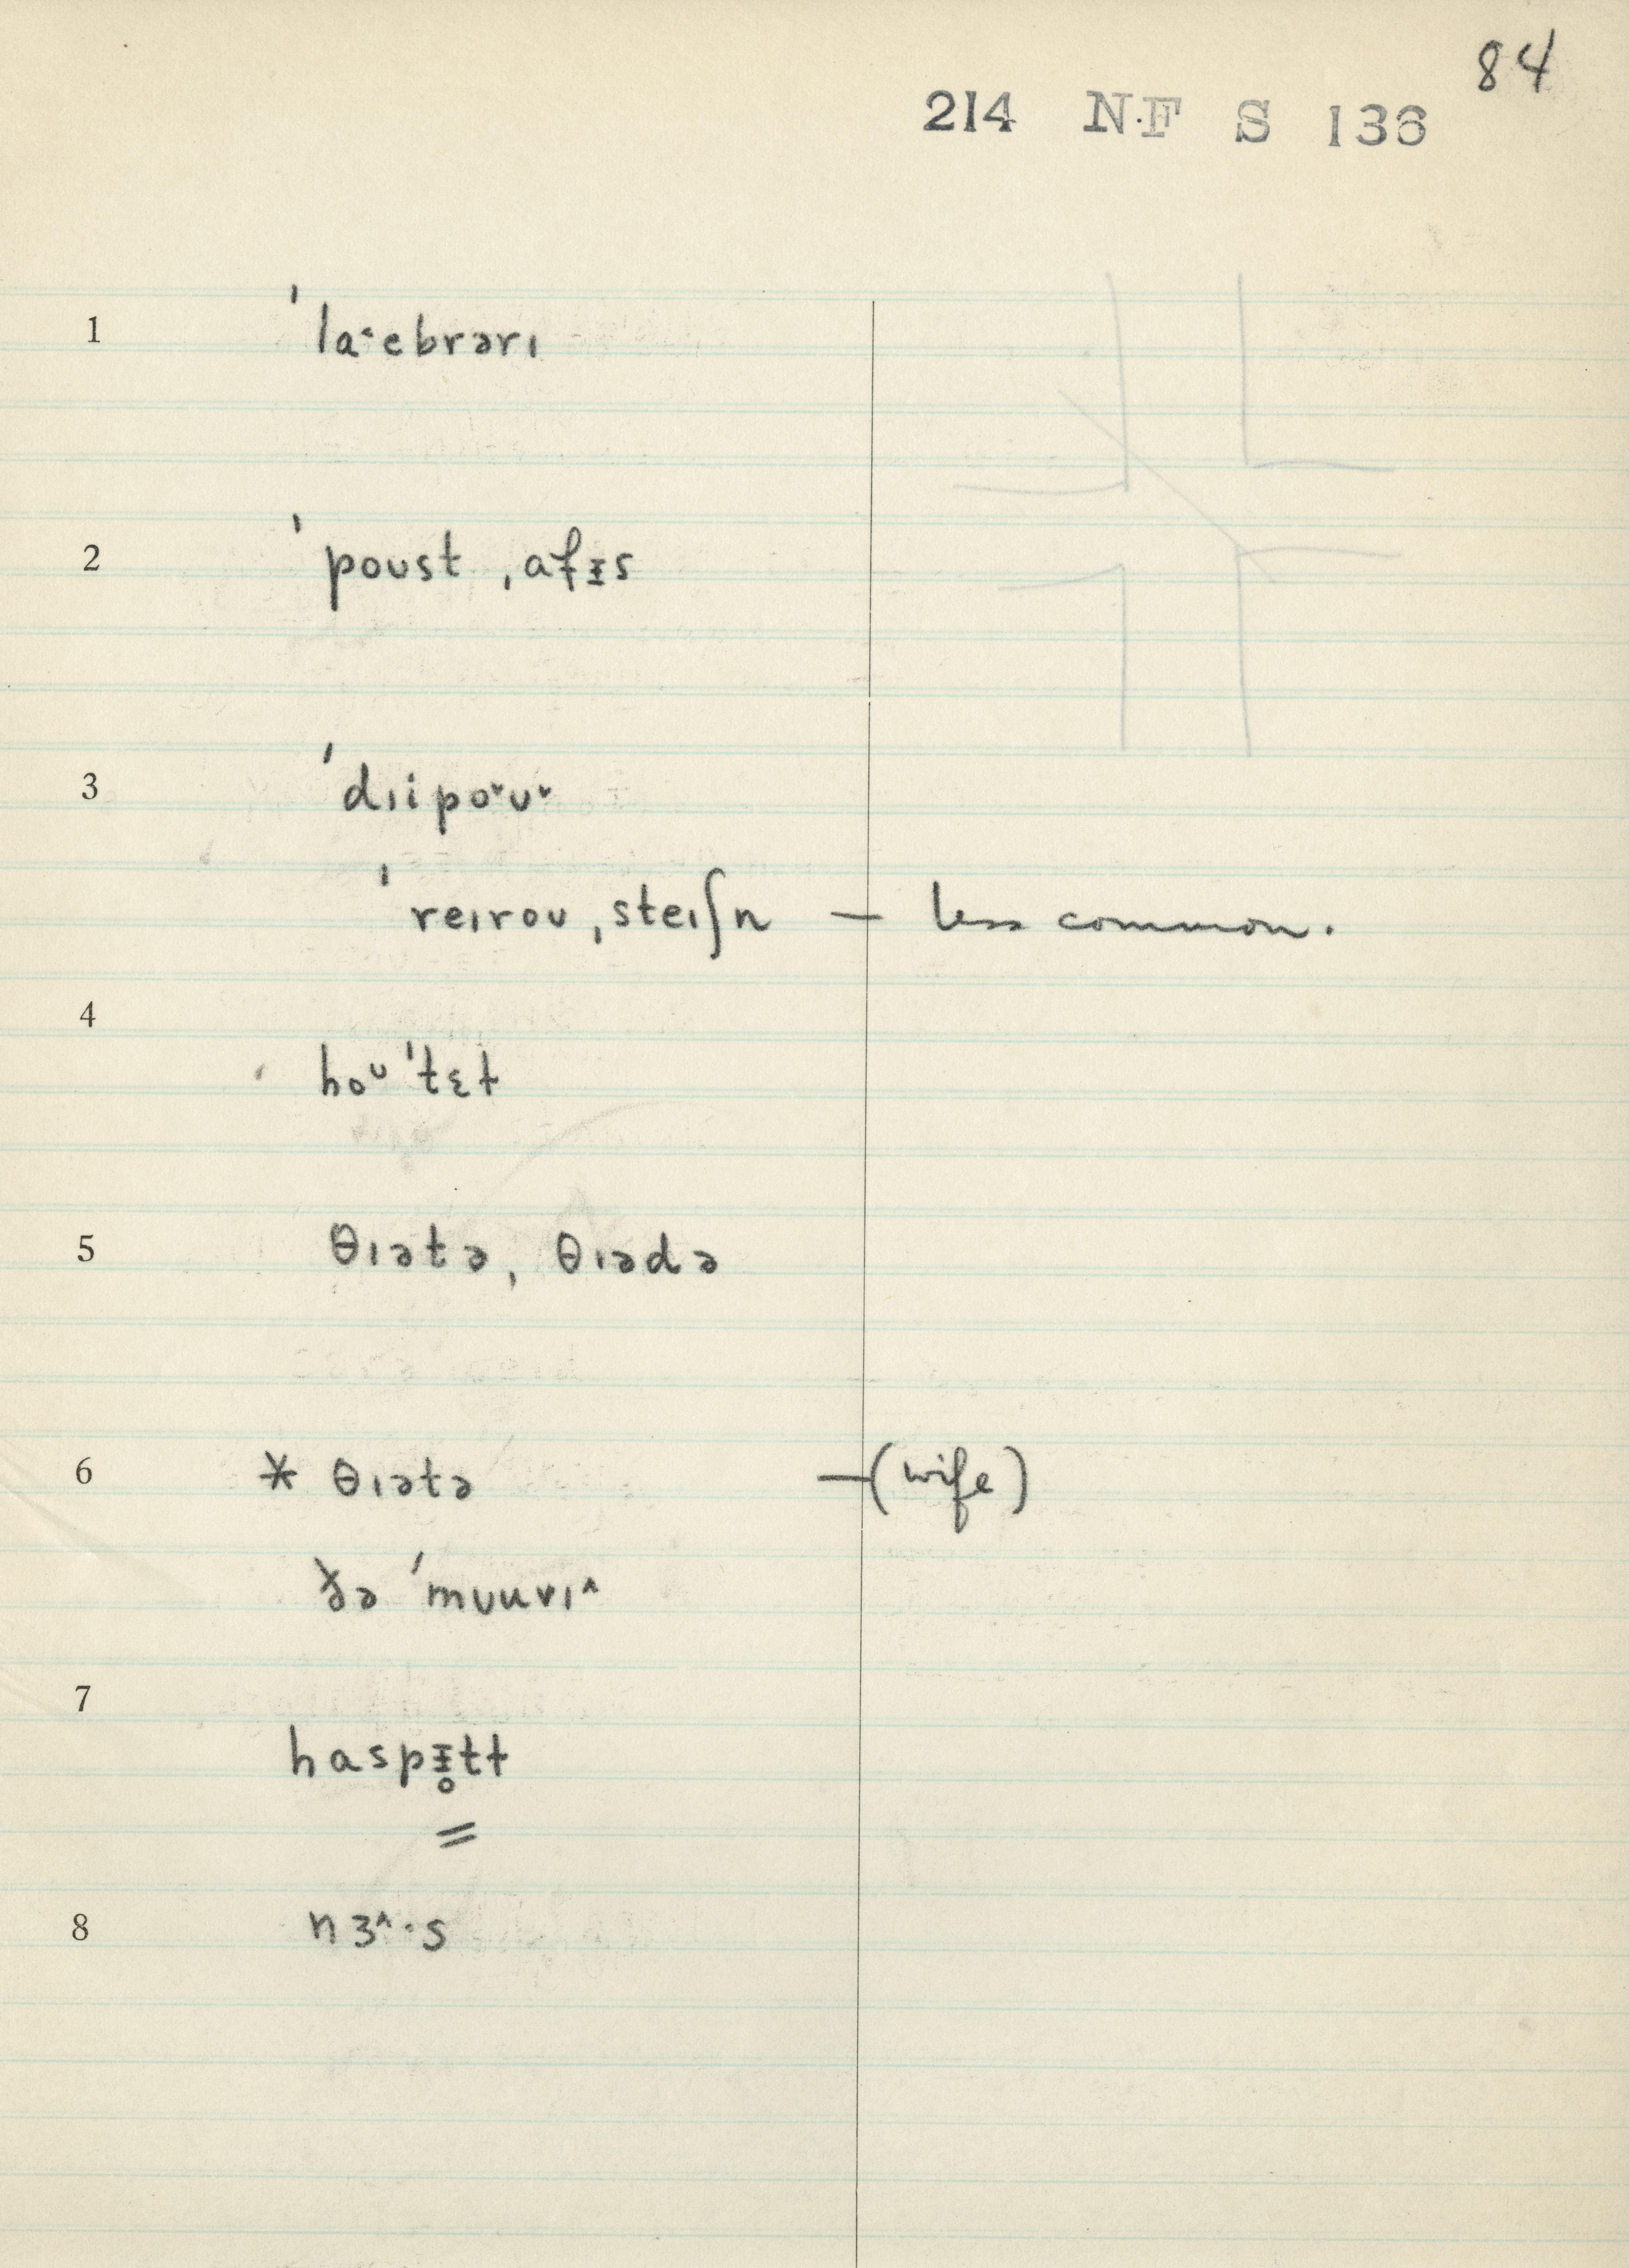 84
214 NF S 136
1 ˈlaˑebrərɪ
2 ˈpoʊst ˌafᵻs
3 ˈdɪipo˅ʊ˅
ˈreɪroʊ ˌsteɪʃn — less common.
4 hoᶷˈtɛt
5 θɪətə, θɪədə
6 * θɪətə — (wife)
ðə ˈmʊuvɪ^
7 haspᵻ̥tt
=
8 nɜ^·s